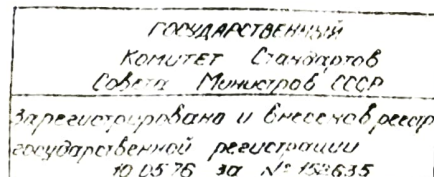 ГОСУДАРСТВЕННЫЙ
Комитет Стандартов
Совета Министров СССР
Зарегистрировано и внесено в реестр
государственной регистрации
10.05.76 за № 158635